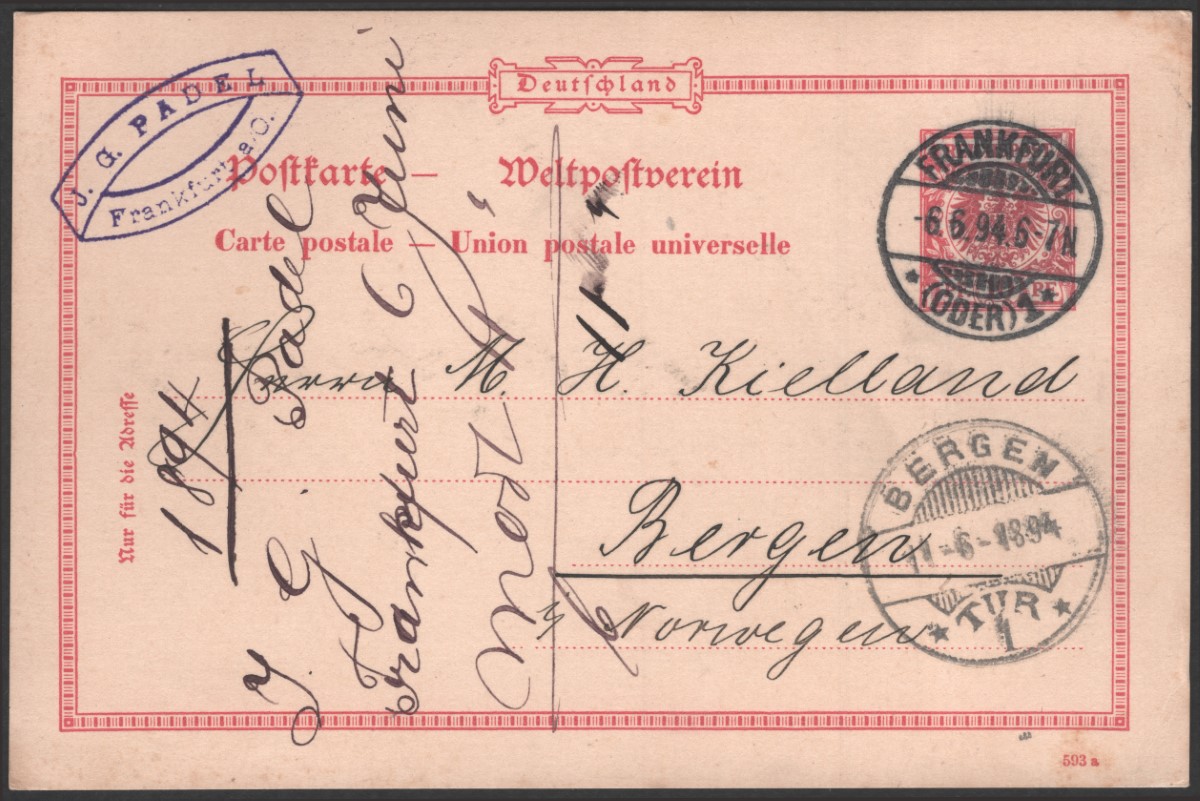 J. G. PADEL
Frankfurt a/O.
Deutschland
Postkarte — Weltpostverein
Carte postale — Union postale universelle
FRANKFURT
-6.6.94.6-7N
* (ODER) 1 *
PF
Nur für die Adresse
Herrn M. H. Kielland
Bergen
i/ Norwegen
BERGEN
11-6-1894
* TUR *
1
1894
J. G. Padel
Frankfurt 6 Juni
Mod 11
593 a